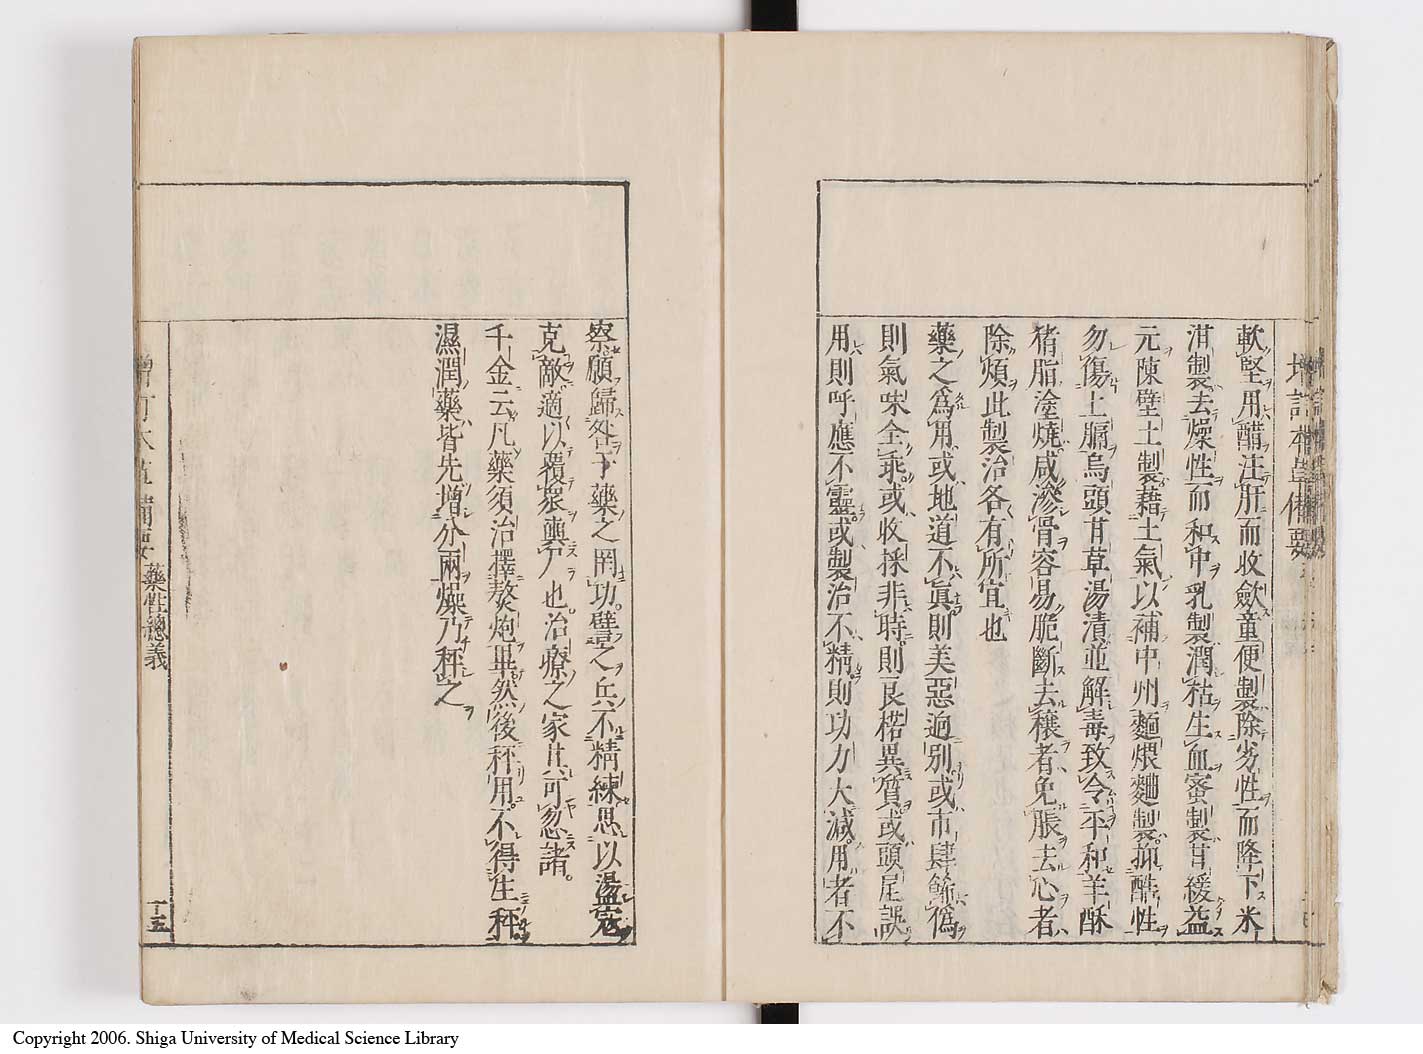 軟堅用醋注肝而收歛童便製除劣性而降下米
泔製去燥性而和中乳製潤枯生血蜜製甘緩益
元陳壁土製藉土氣以補中州麵煨麯製抑酷性
勿傷上膈烏頭甘草湯漬並解毒致令平和羊酥
猪脂塗燒咸滲骨容易脆斷去穰者免脹去心者
除煩此製治各有所宜也
藥之為用或地道不眞則美惡逈別或市肆餙偽
則氣味全乖或收採非時則良楛異質或頭尾誤
用則呼應不靈或製治不精則功力大減用者不
察顧歸咎于藥之罔功譬之兵不精練思以盪寇
克敵適以覆衆輿尸也治療之家其可忽諸
千金云凡藥須治擇熬炮畢然後秤用不得生秤
濕潤藥皆先增分兩燥乃秤之
增訂本草備要 藥性總義 十五
Copyright 2006. Shiga University of Medical Science Library